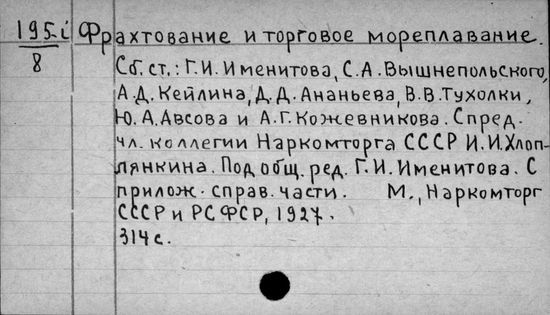 195-i Фрахтование и торговое мореплавание.
8
Сб. ст.: Г.И. Именитова, С.А. Вышнепольского,
А.Д. Кейлина, Д.Д. Ананьева, В.В. Тухолки,
Ю.А. Авсова и А.Г. Кожевникова. С пред.
чл. коллегии Наркомторга СССР И.И. Хлоп-
лянкина. Под общ. ред. Г.И. Именитова. С
прилож. справ. части. М., Наркомторг
СССР и РСФСР, 1927.
314 с.